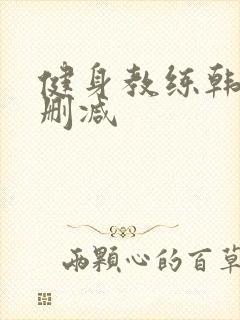 健身教练韩
删减
兩顆心的百草